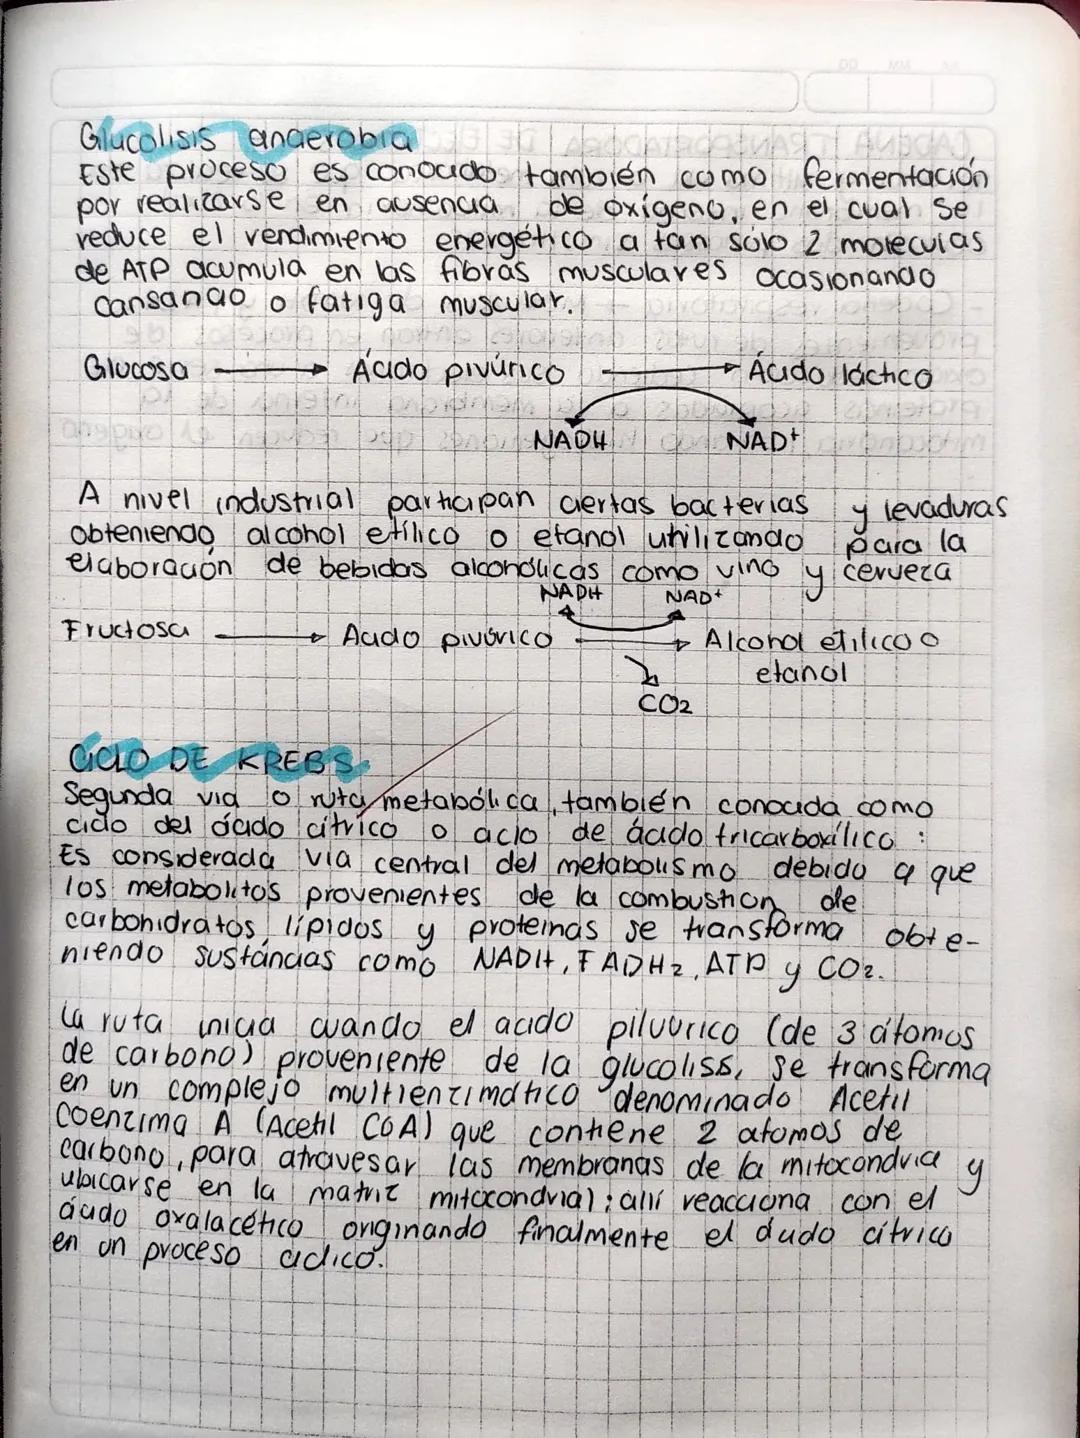 Glucolisis anaerobia
Este proceso es conocido también como fermentación
por realizarse en ausencia de oxígeno, en el cual se
reduce el rendimiento energético a tan sólo 2 moleculas
de ATP acumula en las fibras musculares ocasionando
cansando o fatiga muscular.
Glucosa → Ácido pivúrico → Ácido láctico
NADH NAD+
A nivel industrial participan ciertas bacterias y levaduras
obteniendo alcohol etílico o etanol utilizando para la
elaboración de bebidas alcohólicas como vino y cerveza
NADH NAD+
Fructosa → Acido pivúrico → Alcohol etilico o
etanol
CO2
CICLO DE KREBS
Segunda via o ruta metabólica, también conocida como
ciclo del ácido cítrico o aclo de ácido tricarboxílico:
Es considerada via central del metabolismo debido a que
los metabolitos provenientes de la combustion de
carbohidratos, lípidos y proteinas se transforma obte-
niendo sustáncias como NADH, FADH2, ATP y CO2.
La ruta inicia cuando el acido piluvrico (de 3 átomos
de carbono) proveniente de la glucoliss, se transforma
en un complejo multienzimático denominado Acetil
coenzima A (Acetil COA) que contiene 2 atomos de
carbono, para atravesar las membranas de la mitocondria y
ubicarse en la matriz mitocondrial; allí reacciona con el
ácido oxalacético originando finalmente el ácido cítrico
en un proceso ciclico.